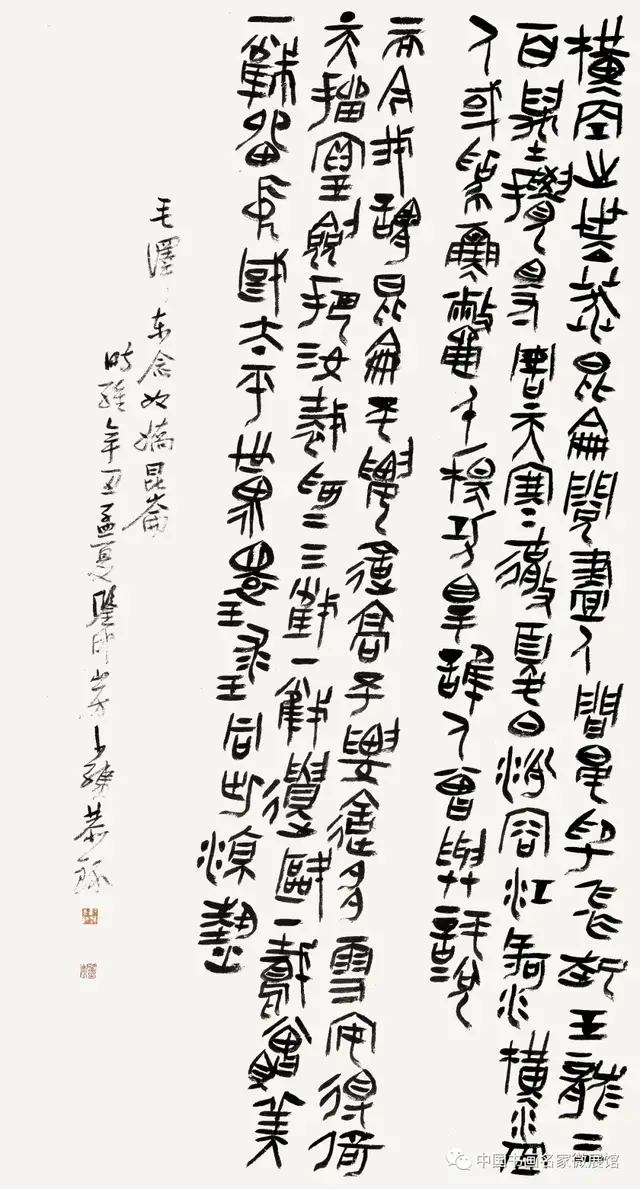 橫空出世莽昆侖閱盡人間春色飛起玉龍三
百萬攪得周天寒徹夏日消溶江河橫溢
人或為魚鱉千秋功罪誰人曾與評說
而今我謂昆侖不要這高不要這多雪安得倚
天抽寶劍把汝裁為三截一截遺歐一截贈美
一截還東國太平世界環球同此涼熱
毛澤東念奴嬌昆侖
時維辛丑孟夏恭録
中国书画名家微展馆